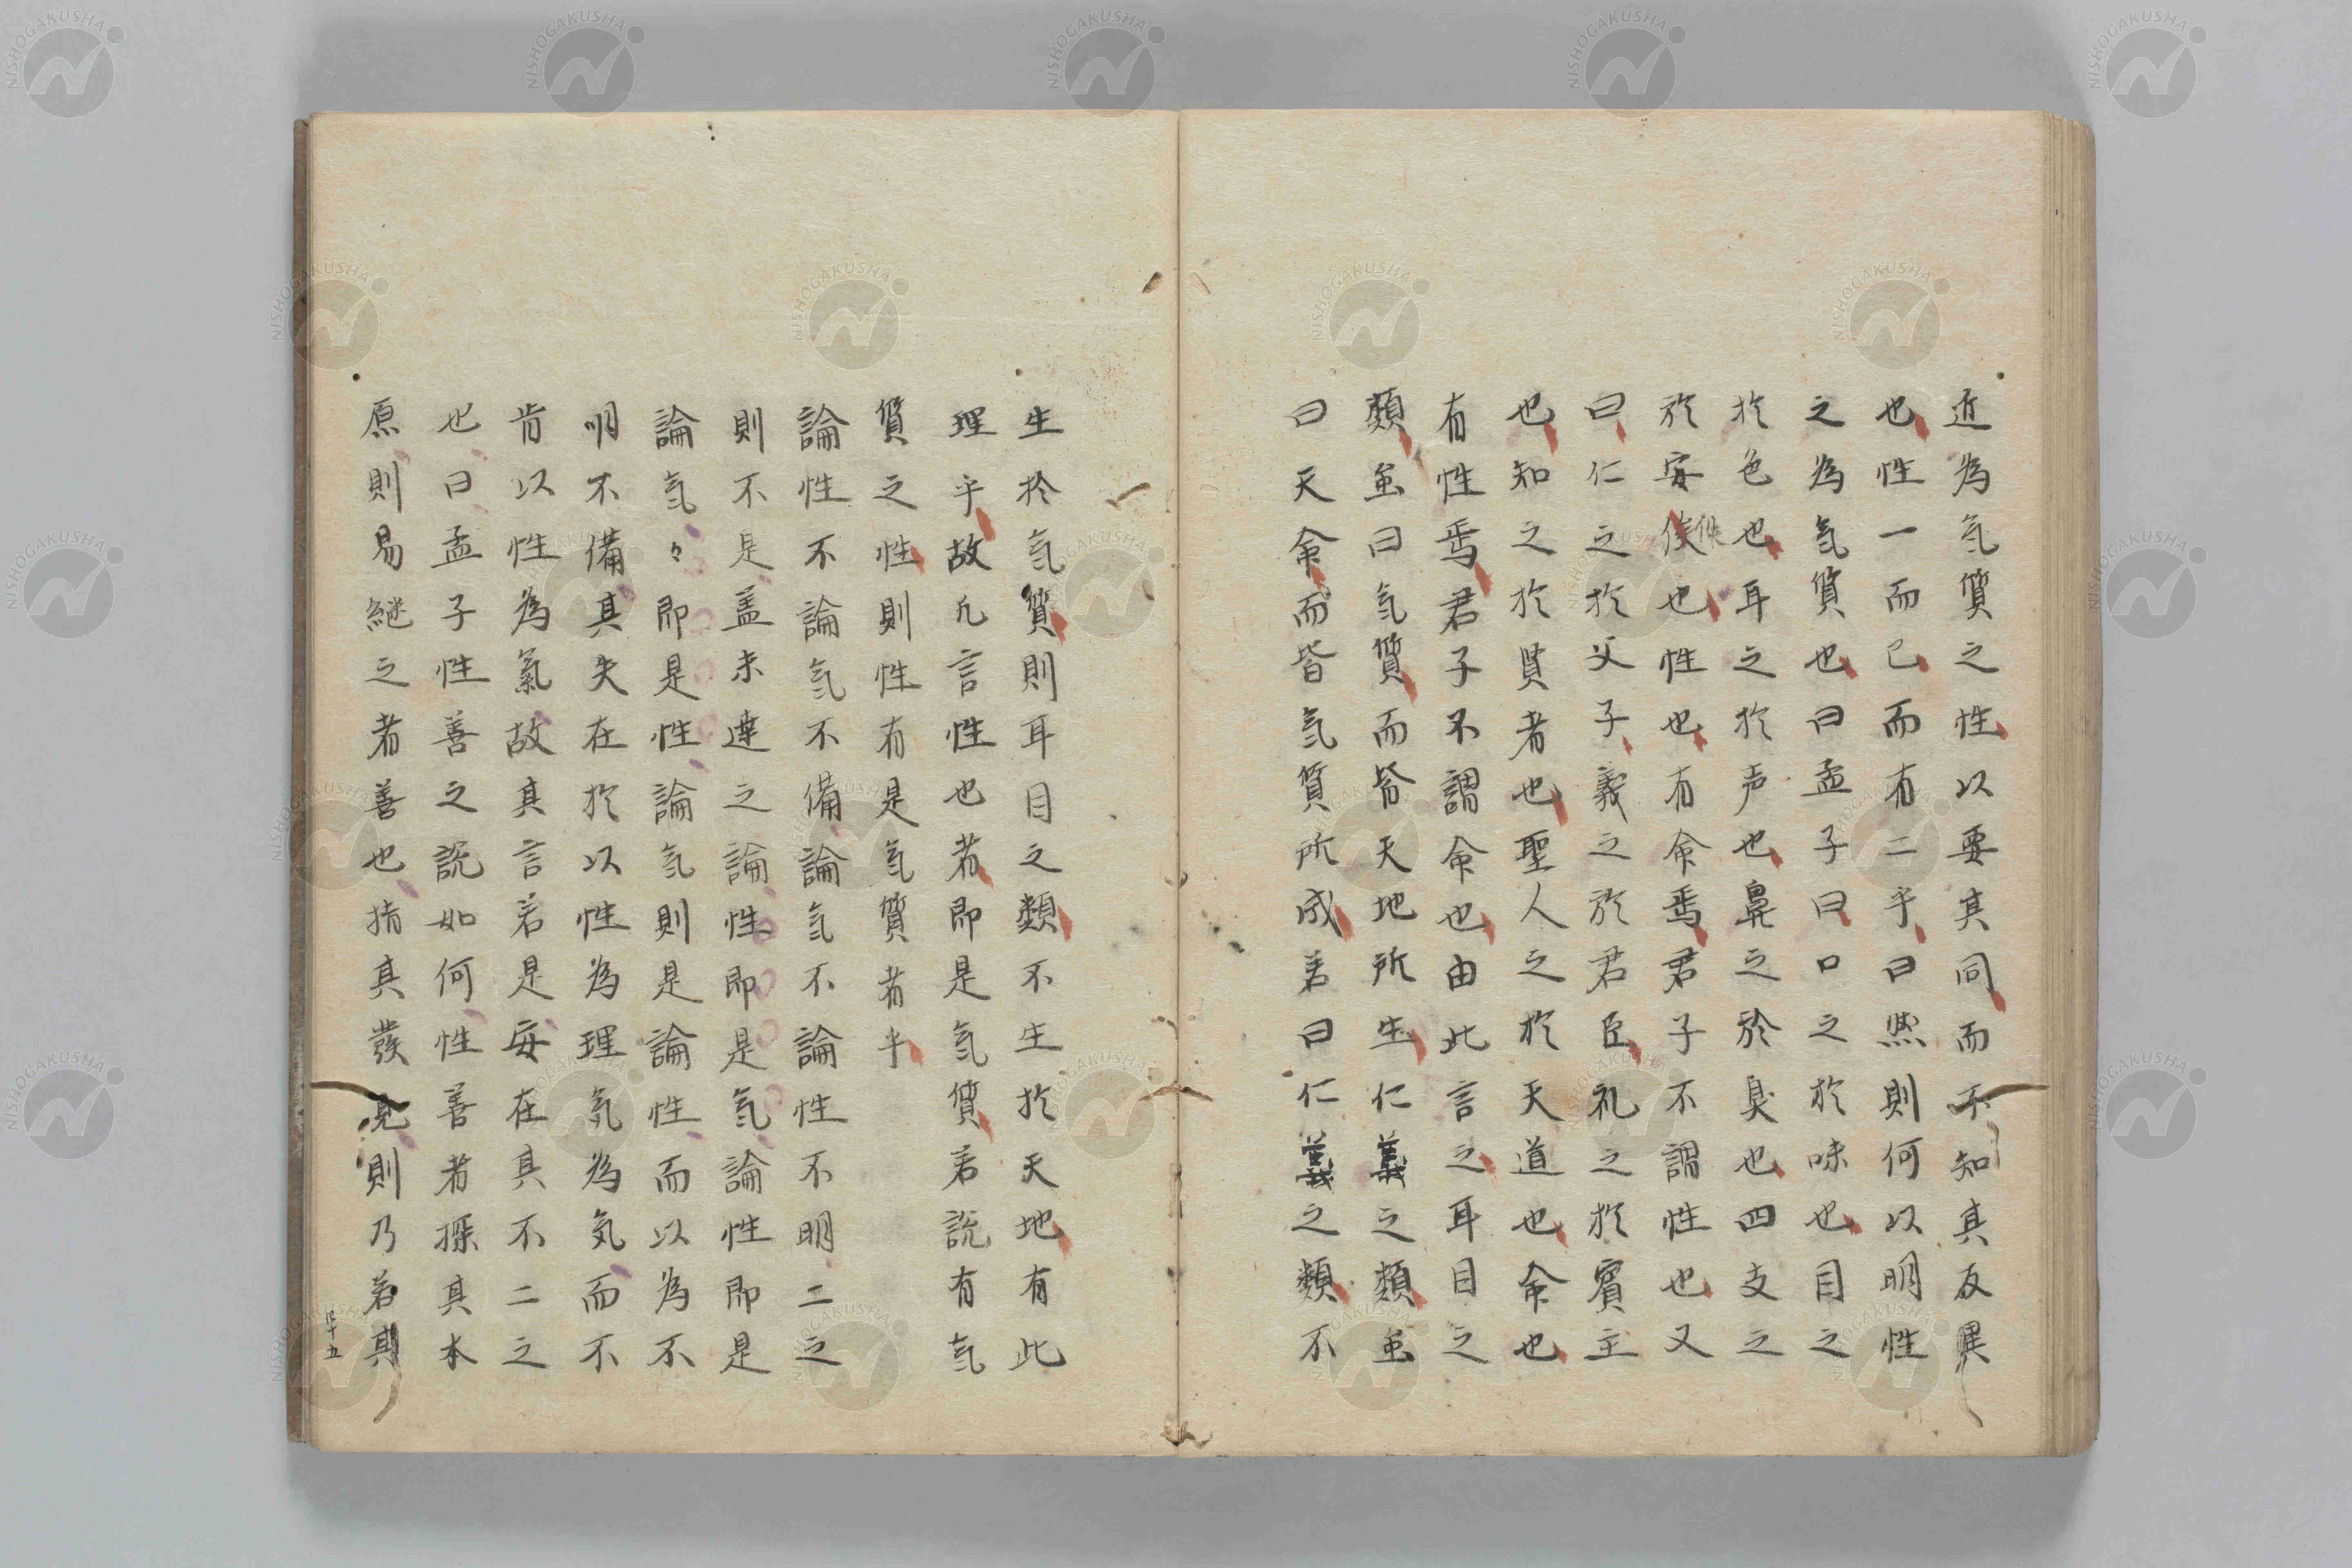 近為気質之性以要其同而不知其反異
也性一而已而有二乎曰然則何以明性
之為気質也曰孟子曰口之於味也目之
於色也耳之於声也鼻之於臭也四支之
於安佚也性也有命焉君子不謂性也又
曰仁之於父子義之於君臣礼之於賓主
也知之於賢者也聖人之於天道也命也
有性焉君子不謂命也由此言之耳目之
類並曰気質而皆天地所生仁義之類並
曰天命而皆気質所成若曰仁義之類不
生於気質則耳目之類不生於天地有此
理乎故凡言性也者即是気質若説有気
質之性則性有是気質者乎
論性不論気不備論気不論性不明二之
則不是盖未達之論性即是気論性即是
論気々即是性論気則是論性而以為不
明不備其失在於以性為理気為気而不
肯以性為氣故其言若是安在其不二之
也曰孟子性善之説如何性善者探其本
原則易継之者善也指其發見則乃若其
四十五
NISHOGAKUSHA